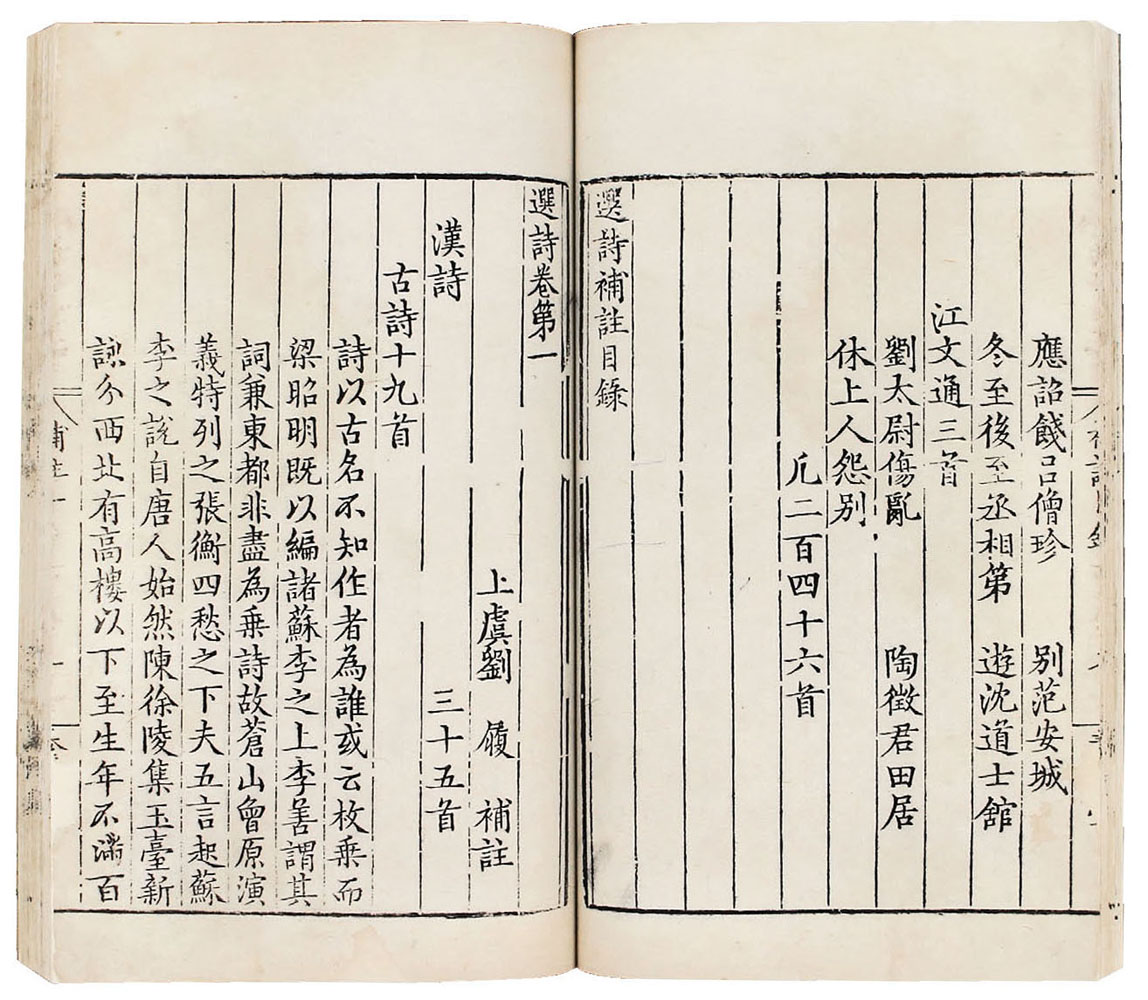 應詔餞呂僧珍　別范安城
冬至後至丞相第　遊沈道士舘
江文通三首
劉太尉傷亂　陶徵君田居
休上人怨别
凢二百四十六首
選詩補註目錄
選詩卷第一
上虞劉　履　補註
漢詩　三十五首
古詩十九首
詩以古名不知作者為誰或云枚乗而
梁昭明既以編諸蘇李之上李善謂其
詞兼東都非盡為乗詩故蒼山曾原演
義特列之張衡四愁之下夫五言起蘇
李之說自唐人始然陳徐陵集玉臺新
詠分西北有高樓以下至生年不滿百
補註一